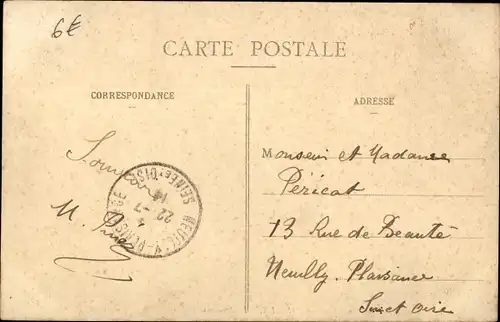 6€
CARTE POSTALE
CORRESPONDANCE
ADRESSE
Monsieur et Madame
Péricat
13 Rue de Beauté
Neuilly Plaisance
Seine et Oise
Souvenir
M.
SEINE-ET-OISE
22 -7